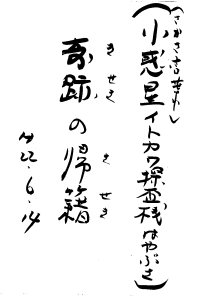 (小惑星イトカワ探査機はやぶさ)
きせき きせき
奇跡の帰籍
H22.6.14